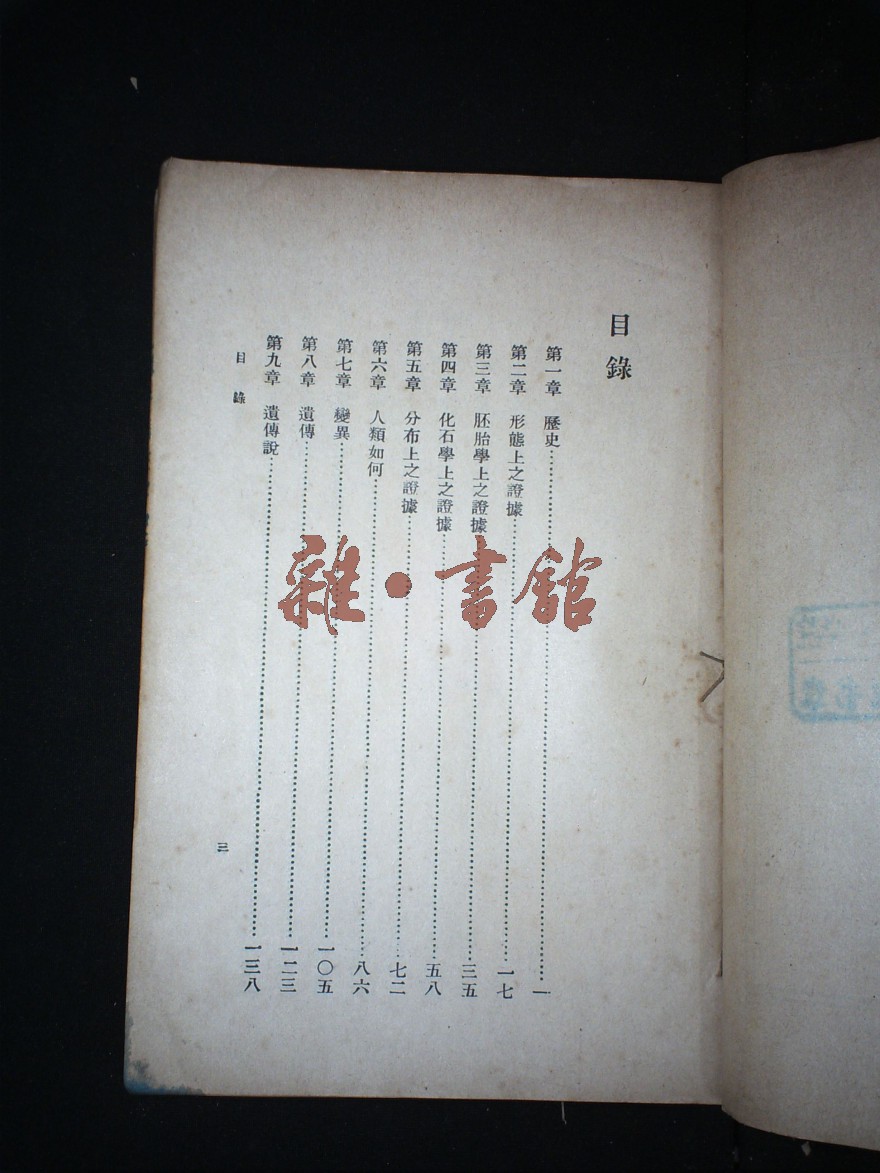 目錄
第一章 歷史……一
第二章 形態上之證據……一七
第三章 胚胎學上之證據……三五
第四章 化石學上之證據……五八
第五章 分布上之證據……七二
第六章 人類如何……八六
第七章 變異……一〇五
第八章 遺傳……一二三
第九章 遺傳說……一三八
目錄
三
雜·書館